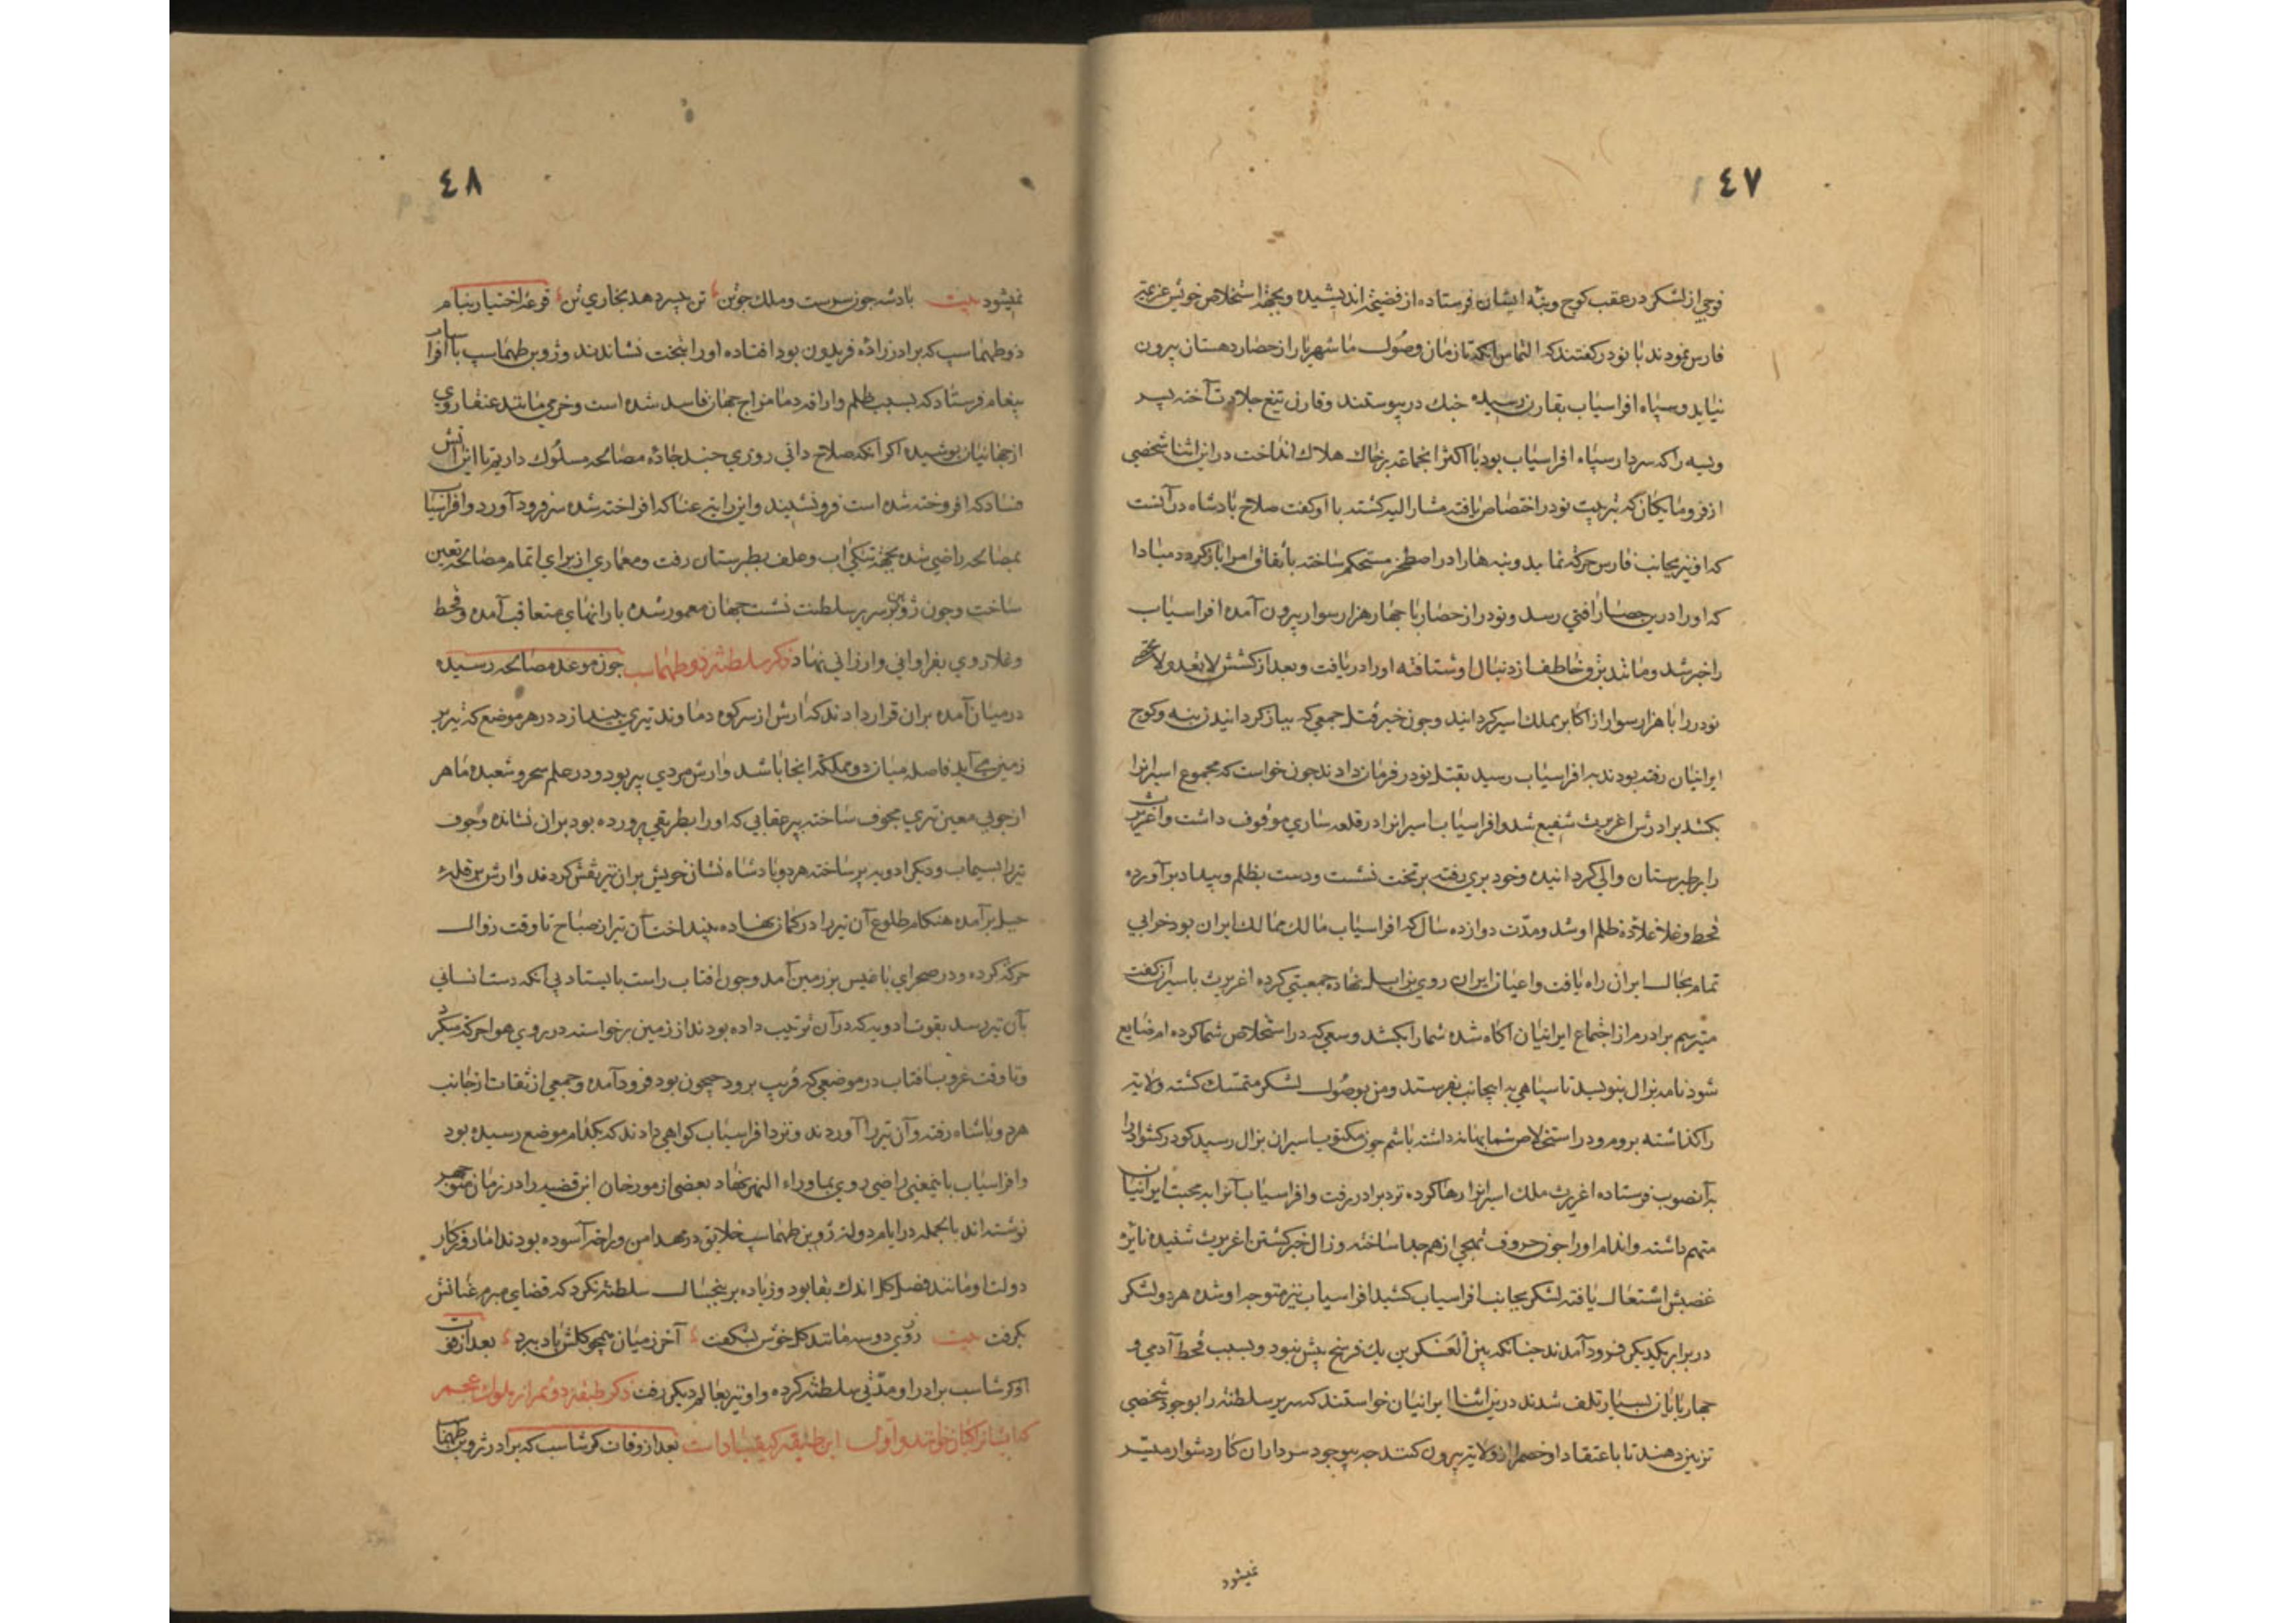 ٤٧
فوجی از لشکر در عقب کوچ وبنه ایشان فرستاده از فضیحت اندیشیده وبجهة استخلاص خویش عزیمت
فارس نمودند با نودر کفتند که التماس آنکه تا زمان وصول ما شهریار از حصار دهستان بیرون
نیاید وسپاه افراسیاب بقارن رسیده جنك در پیوستند وقارن تیغ جلادت آخته پسر
ویسه را که سردار سپاه افراسیاب بود با اکثر انجماعة بر خاك هلاك انداخت در این اثنا شخصی
از فرومایکان که بتربیت نودر اختصاص یافته مشار الیه کشته با او کفت صلاح پادشاه در آنست
که او نیز بجانب فارس حرکة نماید وبنه هارا در اصطخر مستحکم ساخته باتفاق امرا باز کردد مبادا
که او را درین حصار آفتی رسد ونودر از حصار با چهار هزار سوار بیرون آمده افراسیاب
را خبر شد ومانند برق خاطف از دنبال او شتافته او را دریافت وبعد از کشش لا تعد ولا تحصی
نودر را با هزار سوار از اکابر بملك اسیر کردانید وچون خبر قتل جمعی که بباز کردانیدن بنه وکوچ
ایرانیان رفته بودند به افراسیاب رسید بقتل نودر فرمان داد ند چون خواست که مجموع اسیرانرا
بکشد برادرش اغریرث شفیع شد وافراسیاب اسیرانرا در قلعه ساری موقوف داشت واغریرث
را بر طبرستان والی کردانیده وخود بری رفته بر تخت نشست ودست بظلم وبیداد برآورده
قحط وغلا علاوه ظلم او شد ومدّت دوازده سال که افراسیاب مالك ممالك ایران بود خرابی
تمام بحال ایران راه یافت واعیان ایران روی بزابل نهاده جمعیتی کرده اغریرث با اسیران کفت
میترسم برادرم از اجتماع ایرانیان آکاه شده شما را بکشد وسعی که در استخلاص شما کرده ام ضایع
شود نامه بزال بنویسید تا سپاهی به اینجانب بفرستد ومن بوصول لشکر متمسك کشته ولایة
را کذاشته بروم ودر استخلاص شما بهانه داشته باشم چون مکتوب اسیران بزال رسید کودرز کشواد را
بدآنصوب فرستاده اغریرث ملك اسیرانرا رها کرده نزد برادر رفت وافراسیاب آنرا به محبت ایرانیان
متهم داشته واندام او را چون حروف تهجی از هم جدا ساخته وزال خبر کشتن اغریرث شنیده نایرة
غضبش اشتعال یافته لشکر بجانب افراسیاب کشید افراسیاب نیز متوجه او شده هر دو لشکر
در برابر یکدیکر فرود آمدند چنانکه بین العسکرین یك فرسخ بیش نبود وبسبب قحط آدمی و
چهار پایان بسیار تلف شدند درین اثنا ایرانیان خواستند که سریر سلطنة را بوجود شخصی
تزیین دهند تا باعتقاد او خصم را از ولایة بیرون کنند چه بی وجود سردار آن کار دشوار میسّر
نمیشود
٤٨
نمیشود بیت پادشه چون سرست وملك چو تن تن بیسر دهد بخاری تن قرعهٔ اختیار بنام
ذو طهماسپ که برادر زادهٔ فریدون بود افتاده او را بتخت نشاندند وزو بن طهماسپ با افراسیاب
پیغام فرستاد که بسبب ظلم واراقه دما مزاج جهان فاسد شده است وخرمی مانند عنقا روی
از جهانیان پوشیده اکر آنکه صلاح دانی روزی چند جادهٔ مصالحه مسلوك داریم تا این آتش
فساد که افروخته شده است فرو نشیند واین رایة عنا که افراخته شده سر فرود آورد وافراسیاب
بمصالحه راضی شده بجهة تنکی آب وعلف بطبرستان رفت ومعماری از برای اتمام مصالحه تعیین
ساخت وچون زو بن بر سریر سلطنت نشست جهان معمور شده بارانهای متعاقب آمده وقحط
وغلا روی بفراوانی وارزانی نهاد ذکر سلطنة ذو طهماسب چون موعد مصالحه رسیده
در میان آمده بران قرار دادند که آرش از سر کوه دماوند تیری بیندازد در هر موضع که تیر بر
زمین می آید فاصله میان دو مملکة آنجا باشد وآرش مردی پیر بود ودر علم سحر وشعبده ماهر
از چوبی معین تیری مجوف ساخته پر عقابی که او را بطریقی پرورده بود بران نشانده وجوف
تیر را بسیماب ودیکر ادویه پر ساخته هر دو پادشاه نشان خویش بران تیر نقش کردند وآرش بر قلهٔ
جبل برآمده هنکام طلوع آن تیر را در کمان نهاده بینداخت آن تیر از صباح تا وقت زوال
حرکة کرده ودر صحرای باغیس بر زمین آمد وچون افتاب راست بایستاد بی آنکه دست انسانی
بآن تیر رسد بقوت ادویه که در آن ترتیب داده بودند از زمین برخواسته در روی هوا حرکة میکرد
وتا وقت غروب آفتاب در موضعی که قریب برود جیحون بود فرود آمده وجمعی از ثقات از جانب
هر دو پاشاه رفته وآن تیر را آوردند ونزد افراسیاب کواهی دادند که بکدام موضع رسیده بود
وافراسیاب باینمعنی راضی روی بماوراء النهر نهاد بعضی از مورخان این قضیه را در زمان منوچهر
نوشته اند بالجمله در ایام دولة زو بن طهماسپ خلایق در مهد امن وراحة آسوده بودند اما روزکار
دولت او مانند فصل کل اندك بقا بود وزیاده بر پنجسال سلطنة نکرد که قضای مبرم عنانش
بکرفت بیت روزی دو سه مانند کل خوش بشکفت آخر زمیان همچو کلش باد ببرد بعد از فوت
او کرشاسب برادر او مدّتی سلطنة کرده واو نیز بعالم دیکر رفت ذکر طبقهٔ دوم از ملوك عجم
که ایشانرا کیان خوانند واول این طبقه کیقباد است بعد از وفات کرشاسب که برادر زو بن طهماسپ